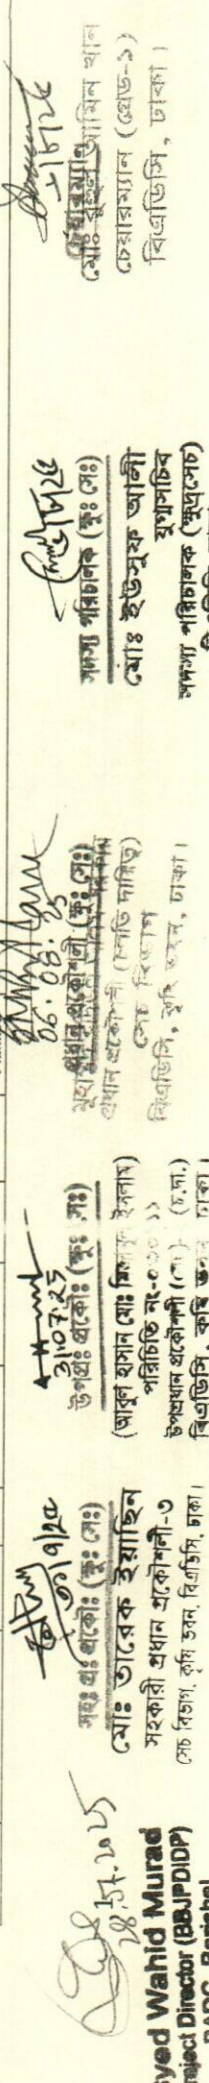 28.07.2025
yed Wahid Murad
roject Director (BBJPDIDP)
BADC, Barishal
৩১/৭/২৫
সহঃ প্রঃ প্রকৌঃ (ক্ষুঃ সেঃ)
মোঃ তারেক ইয়াছিন
সহকারী প্রধান প্রকৌশলী-৩
সেচ বিভাগ, কৃষি ভবন, বিএডিসি, ঢাকা।
31.07.25
উপপ্রঃ প্রকৌঃ (ক্ষুঃ সেঃ)
(আবুল হাসান মোঃ ইসলাম)
পরিচিতি নং-
উপপ্রধান প্রকৌশলী (চ.দা.)
বিএডিসি, কৃষি ভবন, ঢাকা।
06.08.25
প্রধান প্রকৌশলী (ক্ষুঃ সেঃ)
প্রধান প্রকৌশলী (চলতি দায়িত্ব)
সেচ বিভাগ
বিএডিসি, কৃষি ভবন, ঢাকা।
সদস্য পরিচালক (ক্ষুঃ সেঃ)
মোঃ ইউসুফ আলী
যুগ্মসচিব
সদস্য পরিচালক (ক্ষুদ্রসেচ)
চেয়ারম্যান
মোঃ রুহুল আমিন খান
চেয়ারম্যান (গ্রেড-১)
বিএডিসি, ঢাকা।